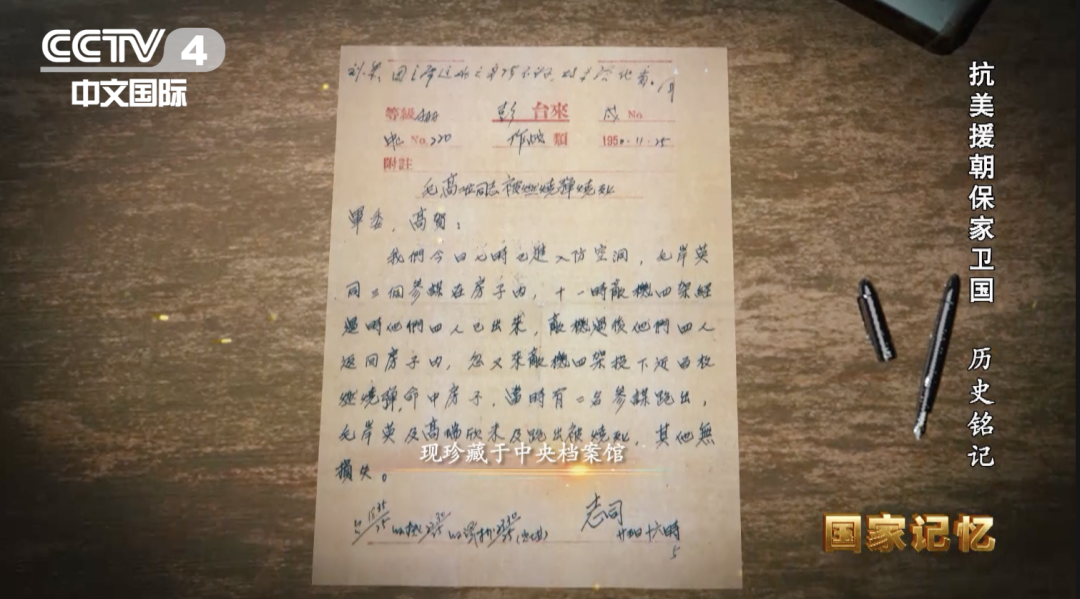 CCTV 4
中文国际
抗美援朝保家卫国 历史铭记
等級 彭 台來 No.
No. 220 類 1950.11.25
附註
毛高二同志被燃燒彈燒死
軍委,高賀:
我們今日七時已進入防空洞,毛岸英
同三個參謀在房子內,十一時敵機四架經
過時他們四人已出來,敵機過後他們四人
返回房子內,忽又來敵機四架投下近百枚
燃燒彈,命中房子,當時有二名參謀跑出,
毛岸英及高瑞欣未及跑出被燒死,其他無
損失。
现珍藏于中央档案馆
志司
廿五日十六時
国家记忆